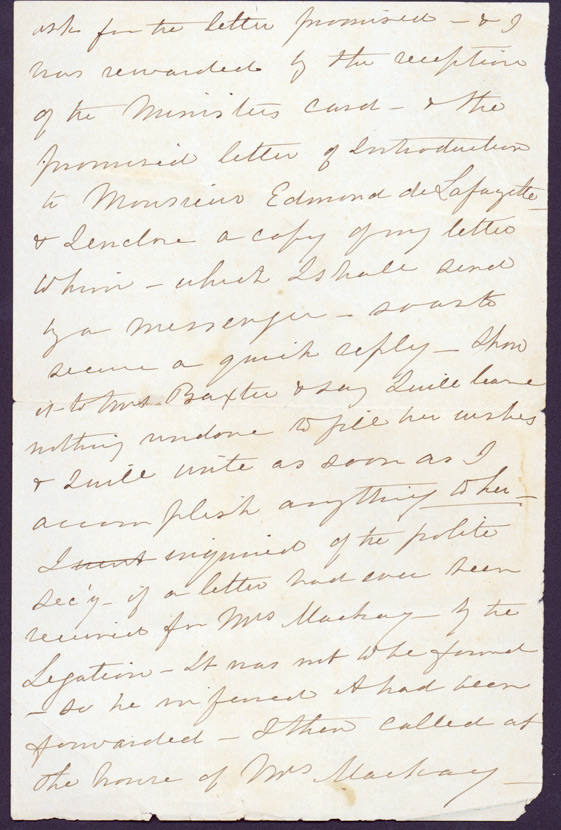 ask for the letter promised - & I
was rewarded by the reception
of the Ministers card - & the
promised letter of Introduction
to Monsieur Edmond de Lafayette -
& I enclose a copy of my letter
to him - which I shall send
by a messenger - so as to
secure a quick reply - Show
it to Mrs. Baxter & say I will leave
nothing undone to fill her wishes
& I will write as soon as I
accomplish anything to her -
I went inquired of the polite
sec'y - if a letter had ever been
received for Mrs Mackay - by the
Legation - It was not to be found
- so he inferred it had been
forwarded - I then called at
the house of Mrs Mackay -